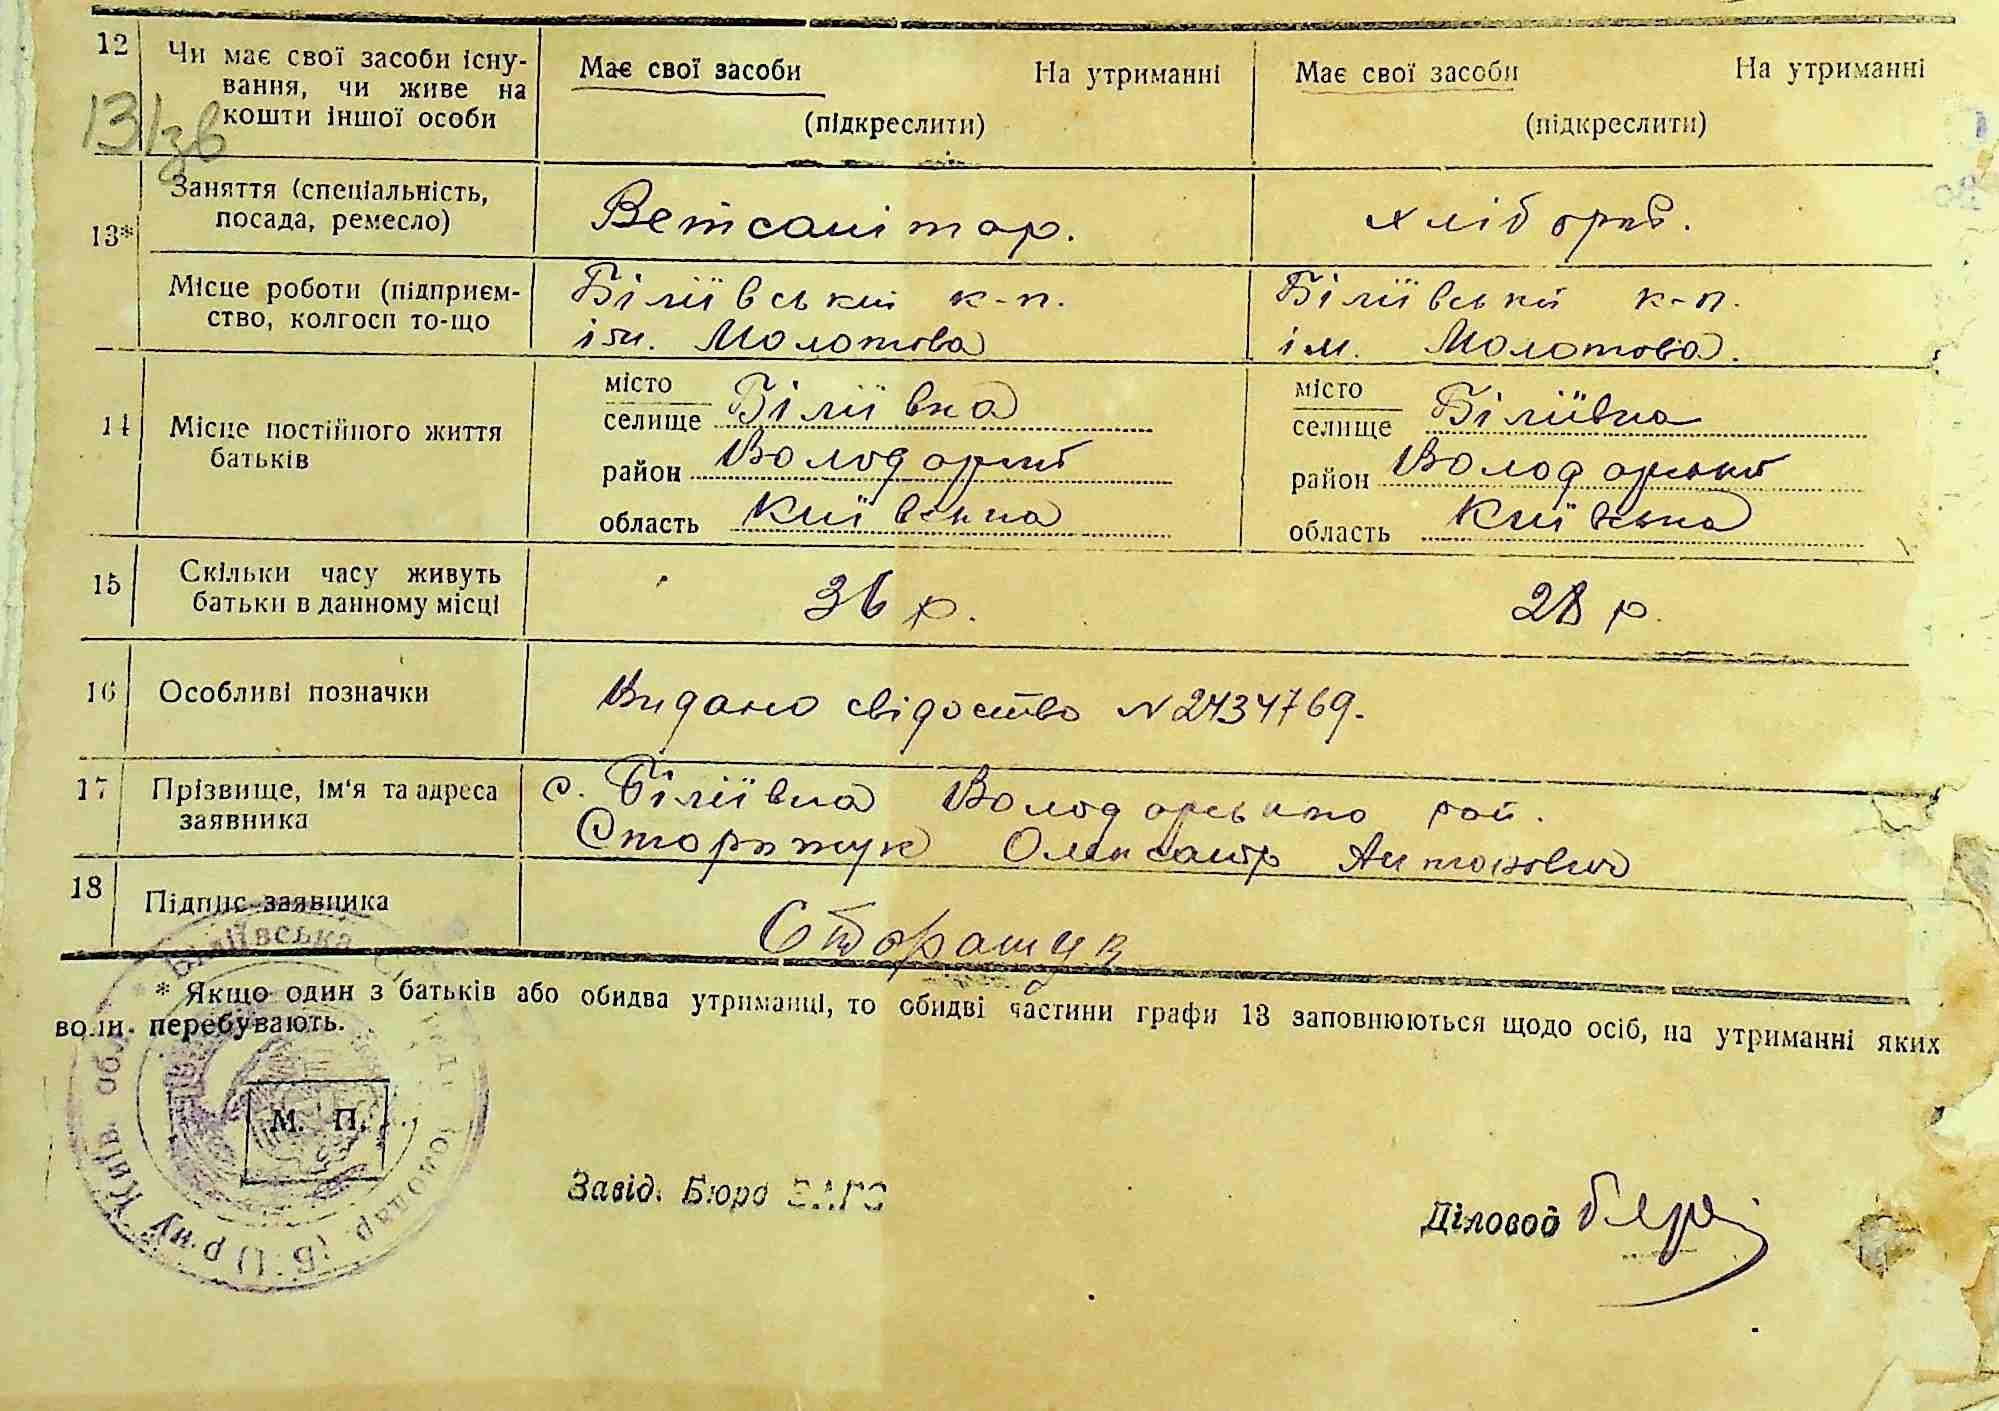 12 Чи має свої засоби існу-
вання, чи живе на
кошти іншої особи
Має свої засоби На утриманні
(підкреслити)
Має свої засоби На утриманні
(підкреслити)
13*
Заняття (спеціальність,
посада, ремесло)
Ветсанітар.
хлібороб.
Місце роботи (підприєм-
ство, колгосп то-що
Біліївський к-п.
ім. Молотова
Біліївський к-п.
ім. Молотова.
14 Місце постійного життя
батьків
місто
селище Біліївка
район Володарський
область Київська
місто
селище Біліївка
район Володарський
область Київська
15 Скільки часу живуть
батьки в данному місці
36 р.
28 р.
16 Особливі позначки
Видано свідоство N 2434769.
17 Прізвище, ім'я та адреса
заявника
с. Біліївка Володарського рай.
Олександр Антонович
18 Підпис заявника
* Якщо один з батьків або обидва утриманці, то обидві частини графи 13 заповнюються щодо осіб, на утриманні яких
вони перебувають.
М. П.
Завід. Бюро ЗАГС
Діловод